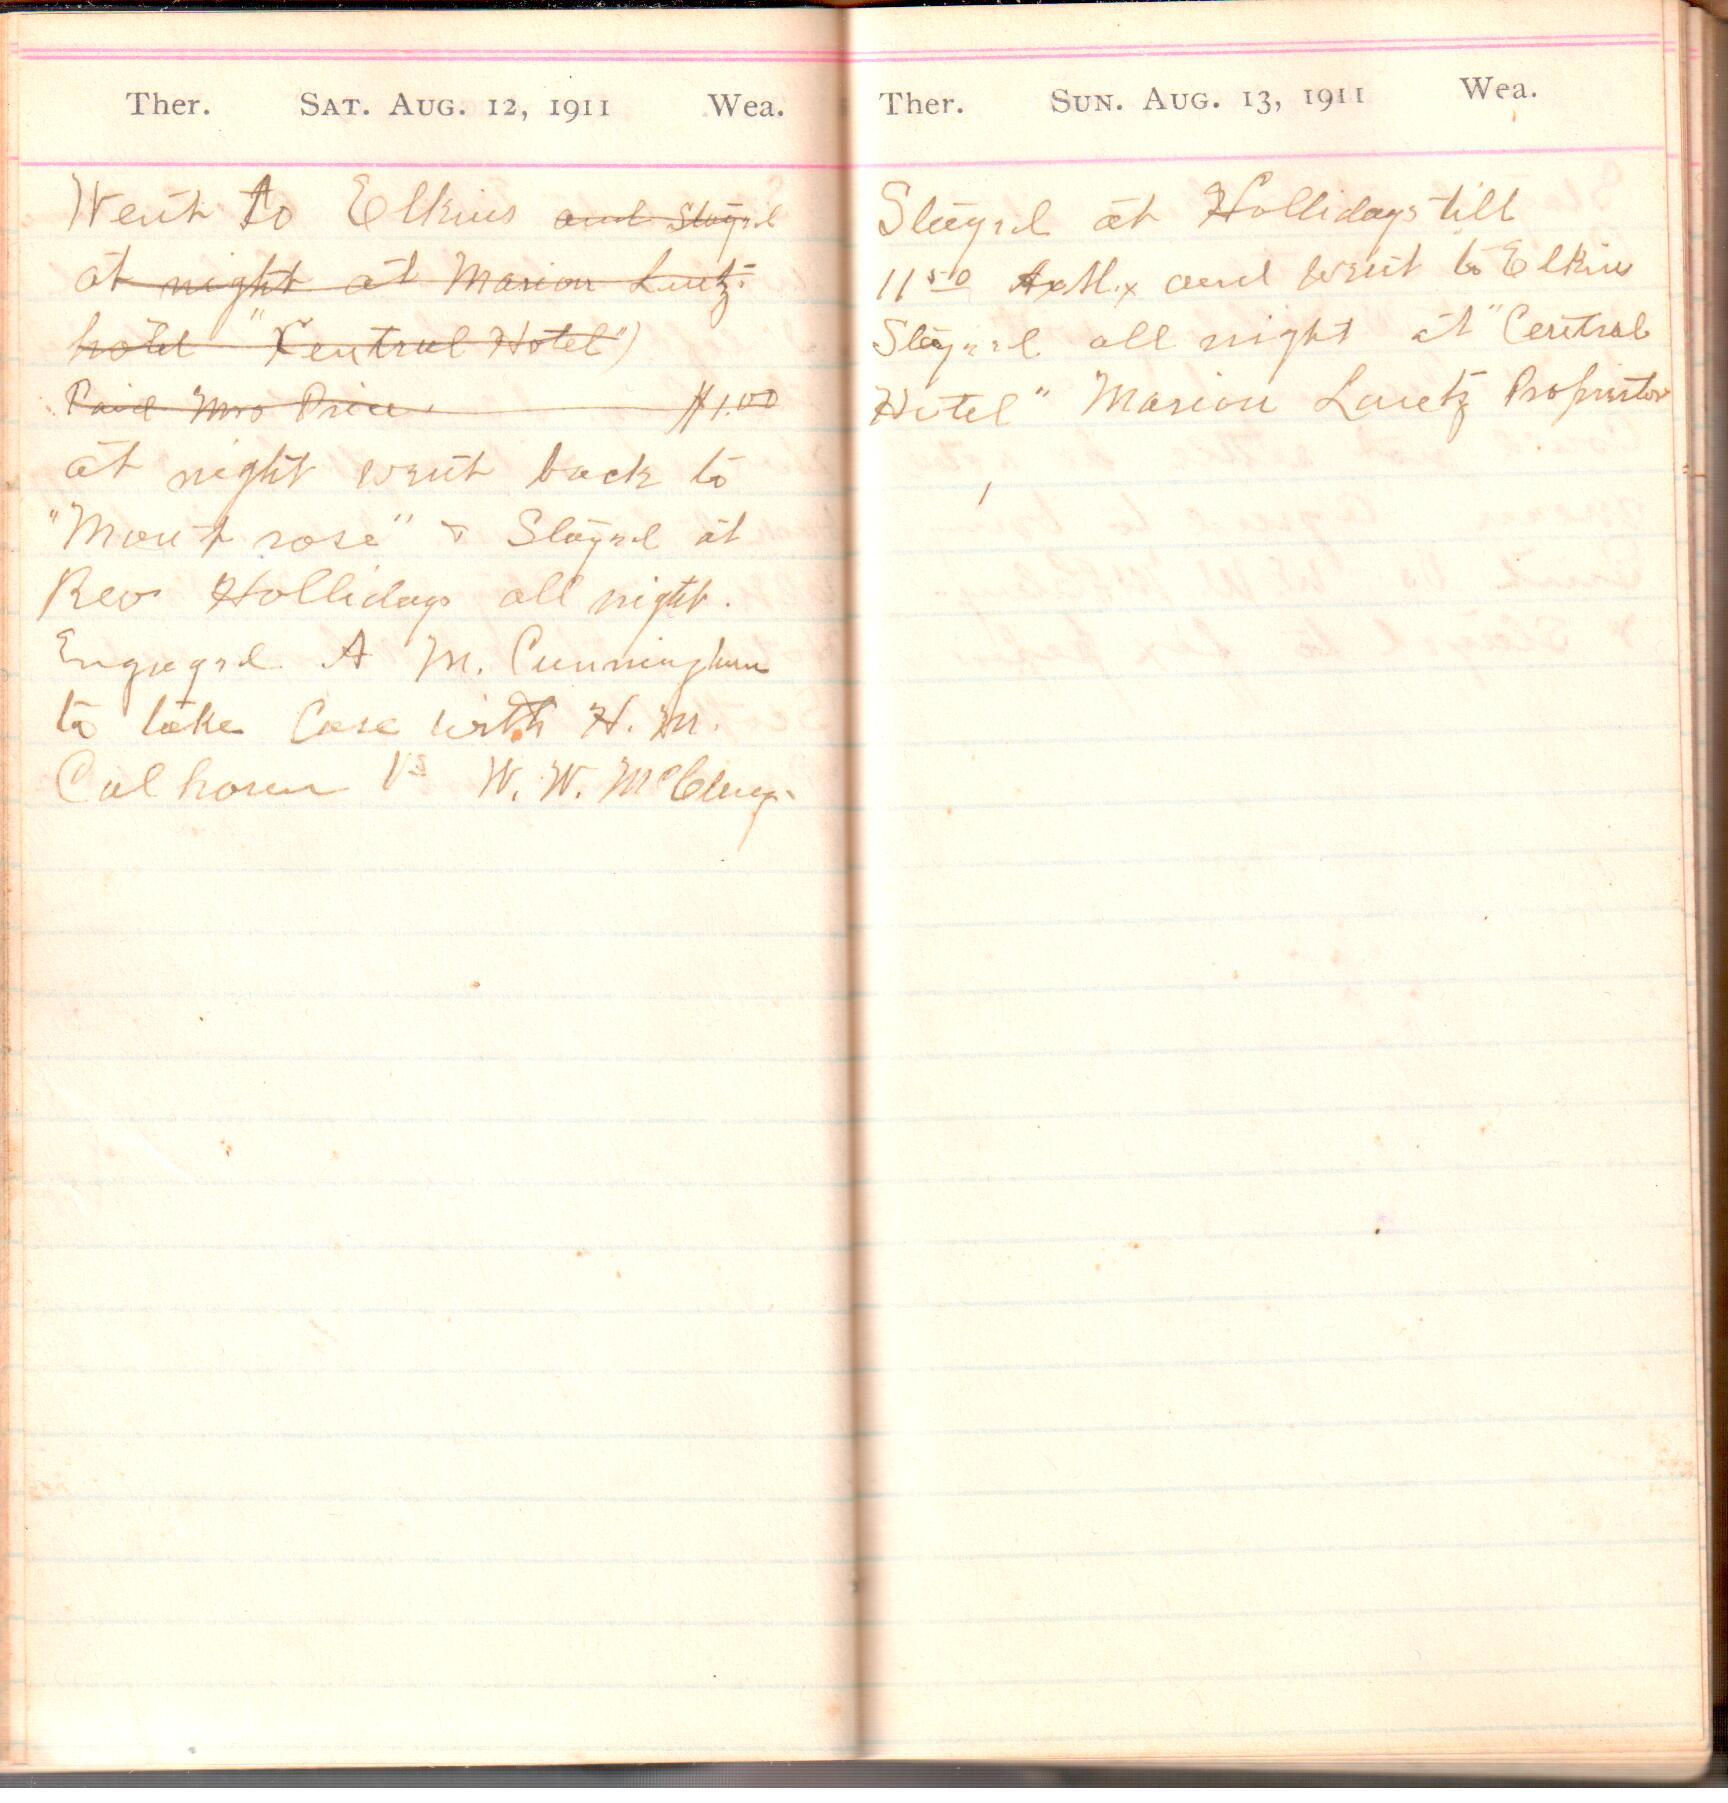 Ther. SAT. AUG. 12, 1911 Wea.
Went to Elkins and Stayed
at night at Marion Lutz
hotel "Central Hotel")
Paid Mrs Price $1.00
at night went back to
"Mont rose" & Stayed at
Rev Hollidays all night.
Engaged A M. Cunningham
to take Case with H. M.
Calhoun Vs W. W. McClung.
Ther. SUN. AUG. 13, 1911 Wea.
Stayed at Hollidays till
11 50 A.M. and went to Elkins
Stayed all night at "Central
Hotel" Marion Lutz Proprietor